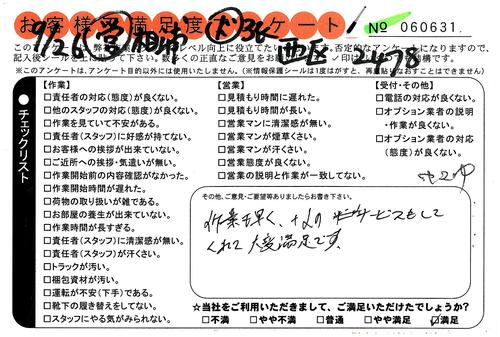 お客様満足度アンケート！
No 060631
9/26 西区 2478
記入後シールを上に貼って下さい。数多くの正直なご意見をお
※このアンケートは、アンケート目的以外には使用いたしません。(※情報保護シールは1度はがすと、再度貼りなおすことはできません)
チェックリスト
【作業】
□責任者の対応(態度)が良くない。
□他のスタッフの対応(態度)が良くない。
□作業を見ていて不安がある。
□責任者(スタッフ)に好感が持てない。
□お客様への挨拶が出来ていない。
□ご近所への挨拶・気遣いが無い。
□作業開始前の内容確認がなかった。
□作業開始時間が遅れた。
□荷物の取り扱いが雑である。
□お部屋の養生が出来ていない。
□作業時間が長すぎる。
□責任者(スタッフ)に清潔感が無い。
□責任者(スタッフ)が汗くさい。
□トラックが汚い。
□梱包資材が汚い。
□運転が不安(下手)である。
□靴下の履き替えをしてない。
□スタッフにやる気がみられない。
【営業】
□見積もり時間に遅れた。
□見積もり時間が長い。
□営業マンに清潔感が無い。
□営業マンが煙草くさい。
□営業マンが汗くさい。
□営業態度が良くない。
□営業の説明と作業が一致してない。
【受付・その他】
□電話の対応が良くない。
□オプション業者の説明
・作業が良くない。
□オプション業者の対応
(態度)が良くない。
その他、ご意見・ご要望等ありましたらお書き下さい。
作業も早く、 サービスもして
くれて大変満足です。
☆当社をご利用いただきまして、ご満足いただけたでしょうか？
□不満 □やや不満 □普通 □やや満足 ☑満足